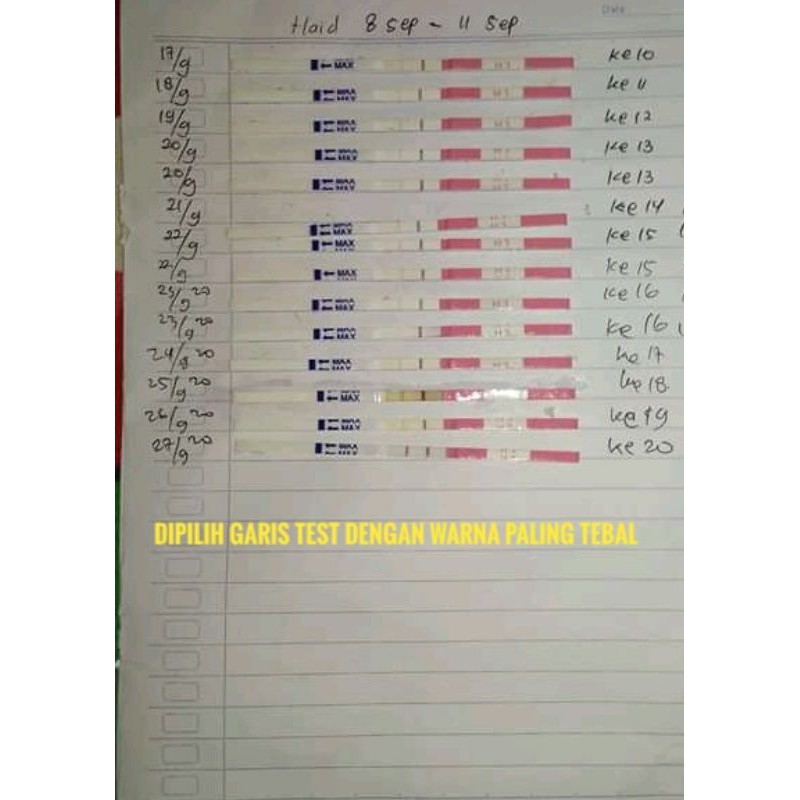 Date
Haid 8 sep - 11 sep
17/9 MAX ke 10
18/9 MAX ke 11
19/9 MAX ke 12
20/9 MAX ke 13
20/9 MAX ke 13
21/9 MAX ke 14
22/9 MAX ke 15
22/9 MAX ke 15
23/9 20 MAX ke 16
23/9 20 MAX ke 16
24/9 20 MAX ke 17
25/9 20 MAX ke 18
26/9 20 MAX ke 19
27/9 20 MAX ke 20
DIPILIH GARIS TEST DENGAN WARNA PALING TEBAL